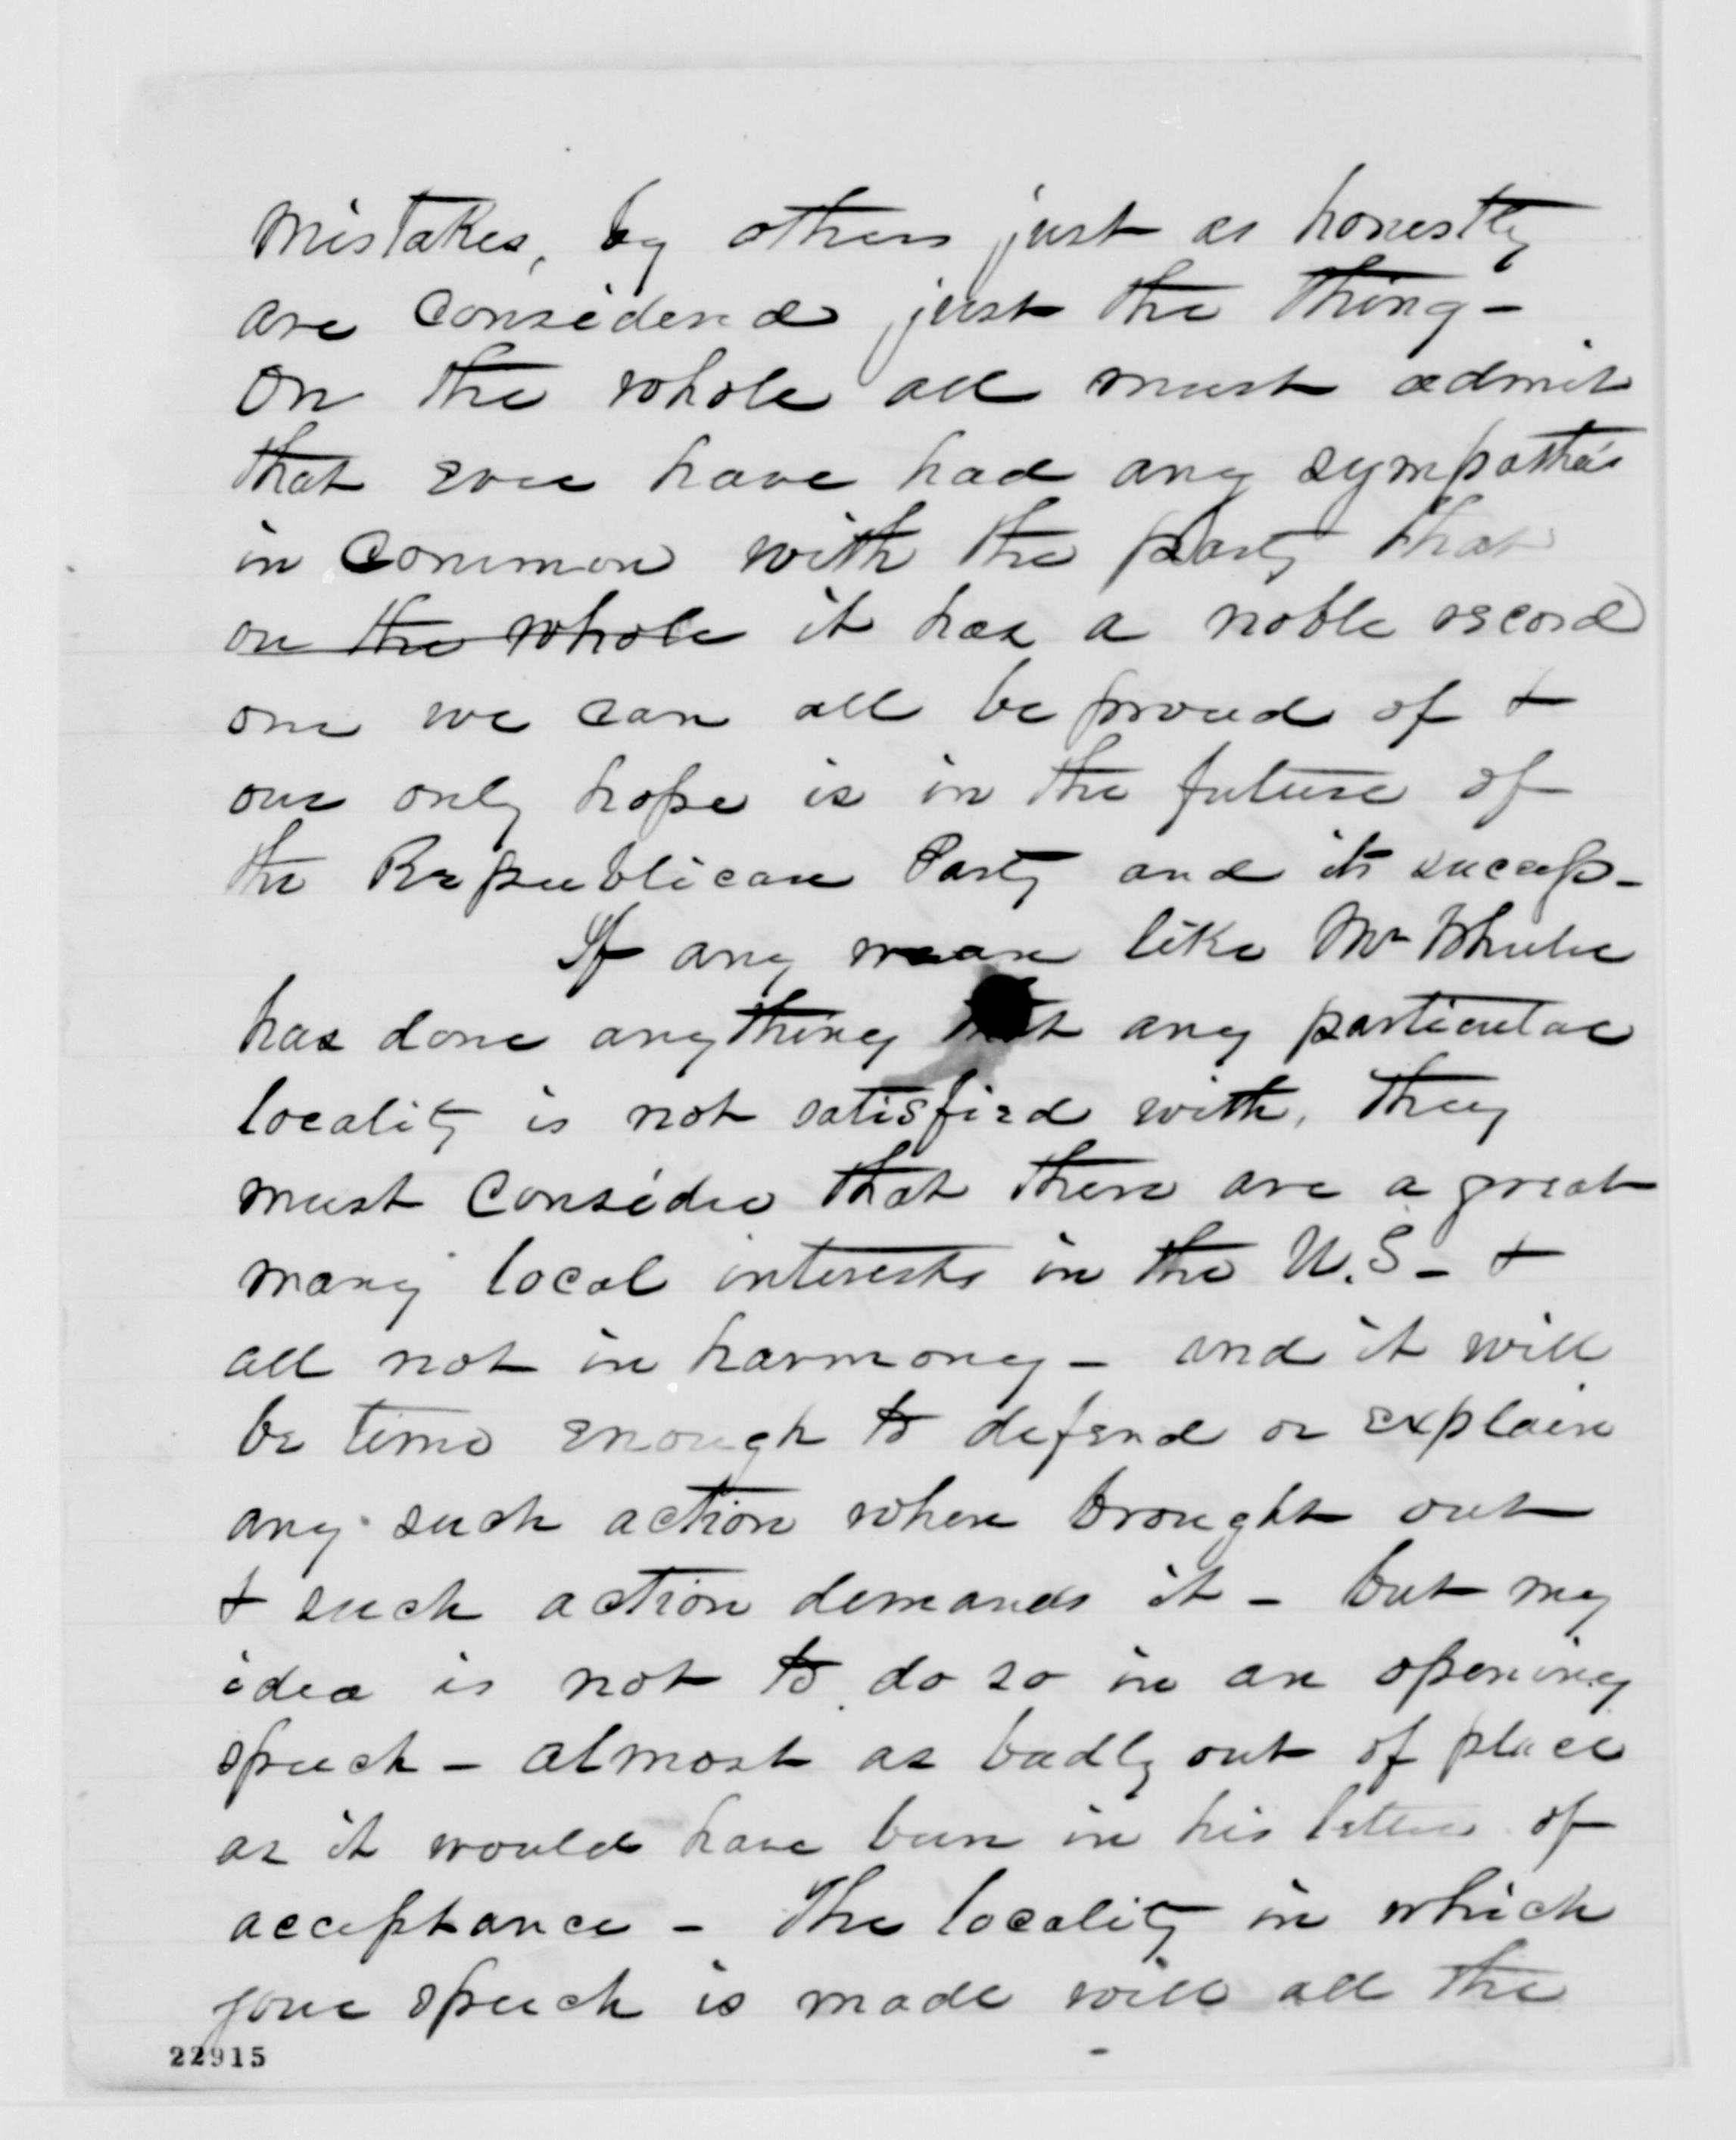 mistakes, by others just as honestly
are considered just the thing -
On the whole all must admit
that ever have had any sympathies
in common with the party that
on the whole it has a noble record
one we can all be proud of &
our only hope is in the future of
the Republican Party and its success -
If any man like Mr Wheeler
has done anything that any particular
locality is not satisfied with, they
must consider that there are a great
many local interests in the U.S - &
all not in harmony - and it will
be time enough to defend or explain
any such action when brought out
& such action demands it - but my
idea is not to do so in an opening
speech - almost as badly out of place
as it would have been in his letter of
acceptance - The locality in which
your speech is made will all the
22915